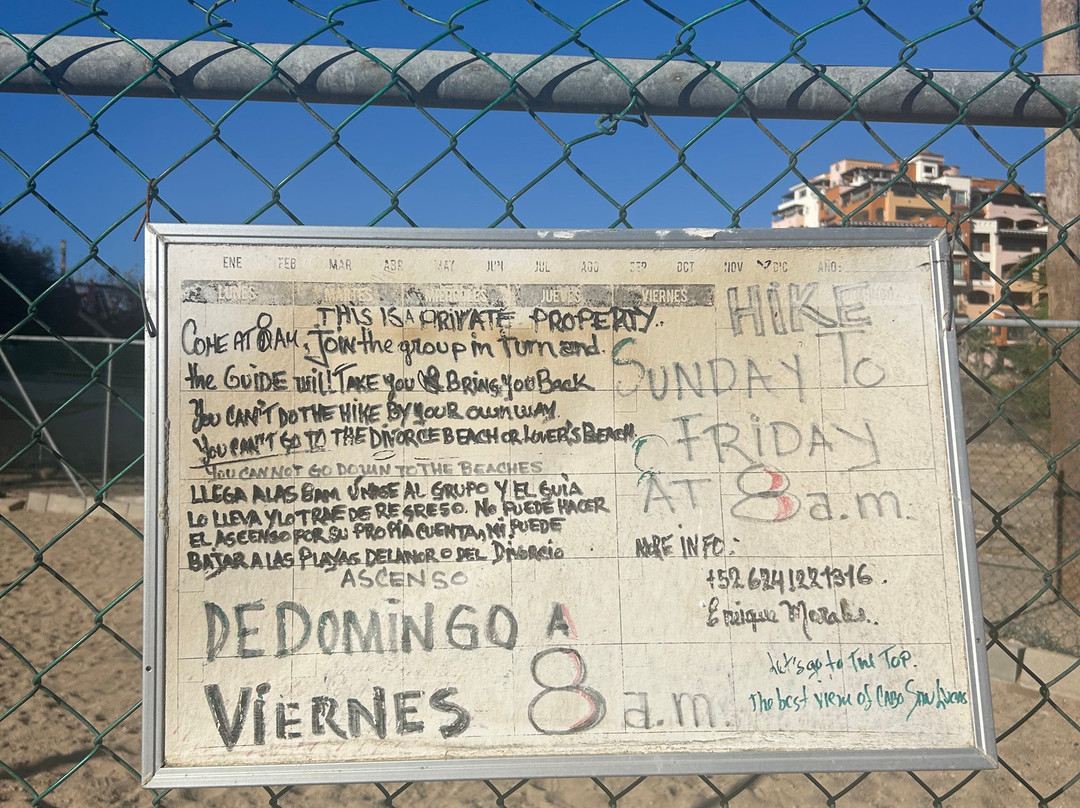 ENE FEB MAR ABR MAY JUN JUL AGO SEP OCT NOV DIC AÑO:
LUNES MARTES MIÉRCOLES JUEVES VIERNES
THIS IS A PRIVATE PROPERTY.
COME AT 8 AM. Join the group in turn and
the GUIDE will TAKE you & BRING YOU BACK
YOU CAN'T DO THE HIKE BY YOUR OWN WAY.
YOU CAN'T GO TO THE DIVORCE BEACH OR LOVER'S BEACH
YOU CANNOT GO DOWN TO THE BEACHES
LLEGA A LAS 8AM ÚNASE AL GRUPO Y EL GUÍA
LO LLEVA Y LO TRAE DE REGRESO. NO PUEDE HACER
EL ASCENSO POR SU PROPIA CUENTA, NI PUEDE
BAJAR A LAS PLAYAS DEL AMOR O DEL DIVORCIO
ASCENSO
DE DOMINGO A
VIERNES 8 a.m.
HIKE
SUNDAY TO
FRIDAY
AT 8 a.m.
MORE INFO:
+52 6241221316.
Enrique Morales.
Let's go to The Top.
The best view of CABO SAN LUCAS